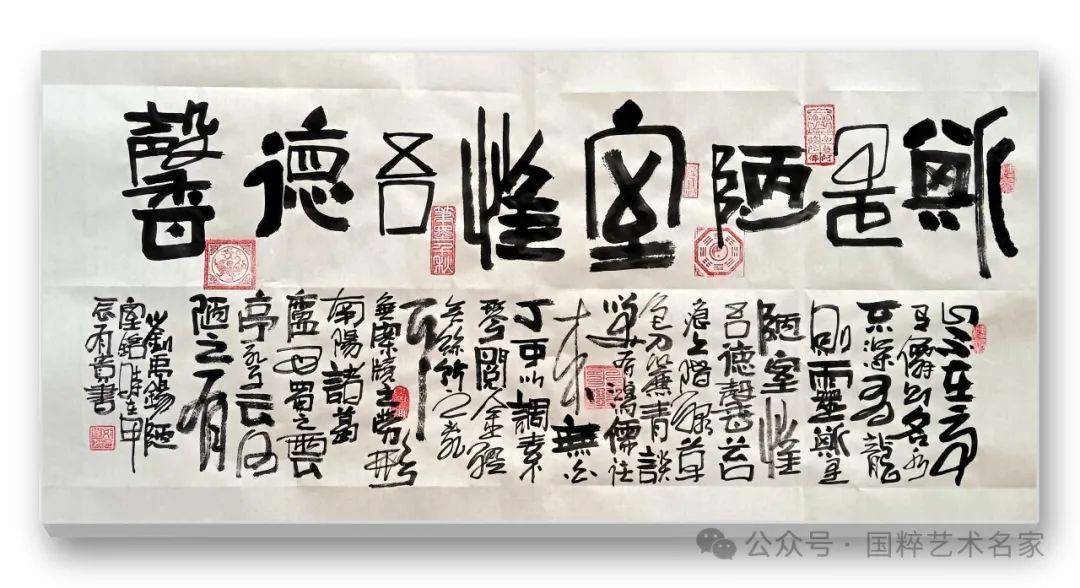 斯是陋室惟吾德馨
山不在高
有僊則名水
不深有龍
則靈斯是
陋室惟
吾德馨苔
痕上階綠草
色入簾青談
笑有鴻儒往
來無白
丁可以調素
琴閱金經
無絲竹之亂
耳
無案牘之勞形
南陽諸葛
廬西蜀之雲
亭孔子云何
陋之有
劉禹錫陋
室銘時在甲
辰有貴書
公众号 · 国粹艺术名家